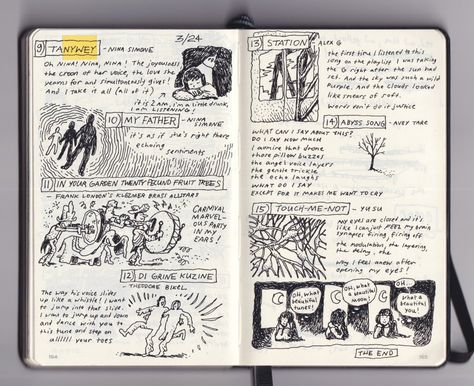 3/24
9) TANYWEY - NINA SIMONE
Oh NINA! Nina, NINA! The joyousness,
the croon of her voice, the love she
yearns for and simultaneously gives!
And I take it all (all of it)
it is 2 AM, i'm a little drunk,
i am listening!
10) MY FATHER - NINA
SIMONE
it's as if she's right there
echoing
sentiments
11) IN YOUR GARDEN TWENTY FECUND FRUIT TREES
- FRANK LONDON'S KLEZMER BRASS ALLSTARS
CARNIVAL
MARVEL-
OUS
PARTY
IN MY
EARS!
12) DI GRINE KUZINE
THEODORE BIKEL
The way his voice slides
up like a whistle! I want
to jump into that slide.
I want to jump up and down
and dance with you to
this tune and step on
all//// your toes
164
13) STATION - ALEX G
the first time I listened to this
song on the playlist I was taking
the G right after the sun had
set. And the sky was such a wild
purple. And the clouds looked
like smears of soda.
Words don't do it justice
14) ABYSS SONG - AVEY TARE
WHAT CAN I SAY ABOUT THIS?
DO I SAY HOW MUCH
I admire that drone
those pillow buzzes
the angel voice layers
the gentle trickle
the echo laughs
WHAT DO I SAY
EXCEPT FOR IT MAKES ME WANT TO CRY
15) TOUCH-ME-NOT - YU SU
MY eyes are closed and it's
like I can just FEEL my brain
synapses firing, firing off
the modulation, the layering,
the delay, the
Why I feel anew after
opening my eyes!
Oh, what
beautiful
tunes!
Oh, what
a beautiful
moon!
OH...
what a
beautiful
you!
THE END
165